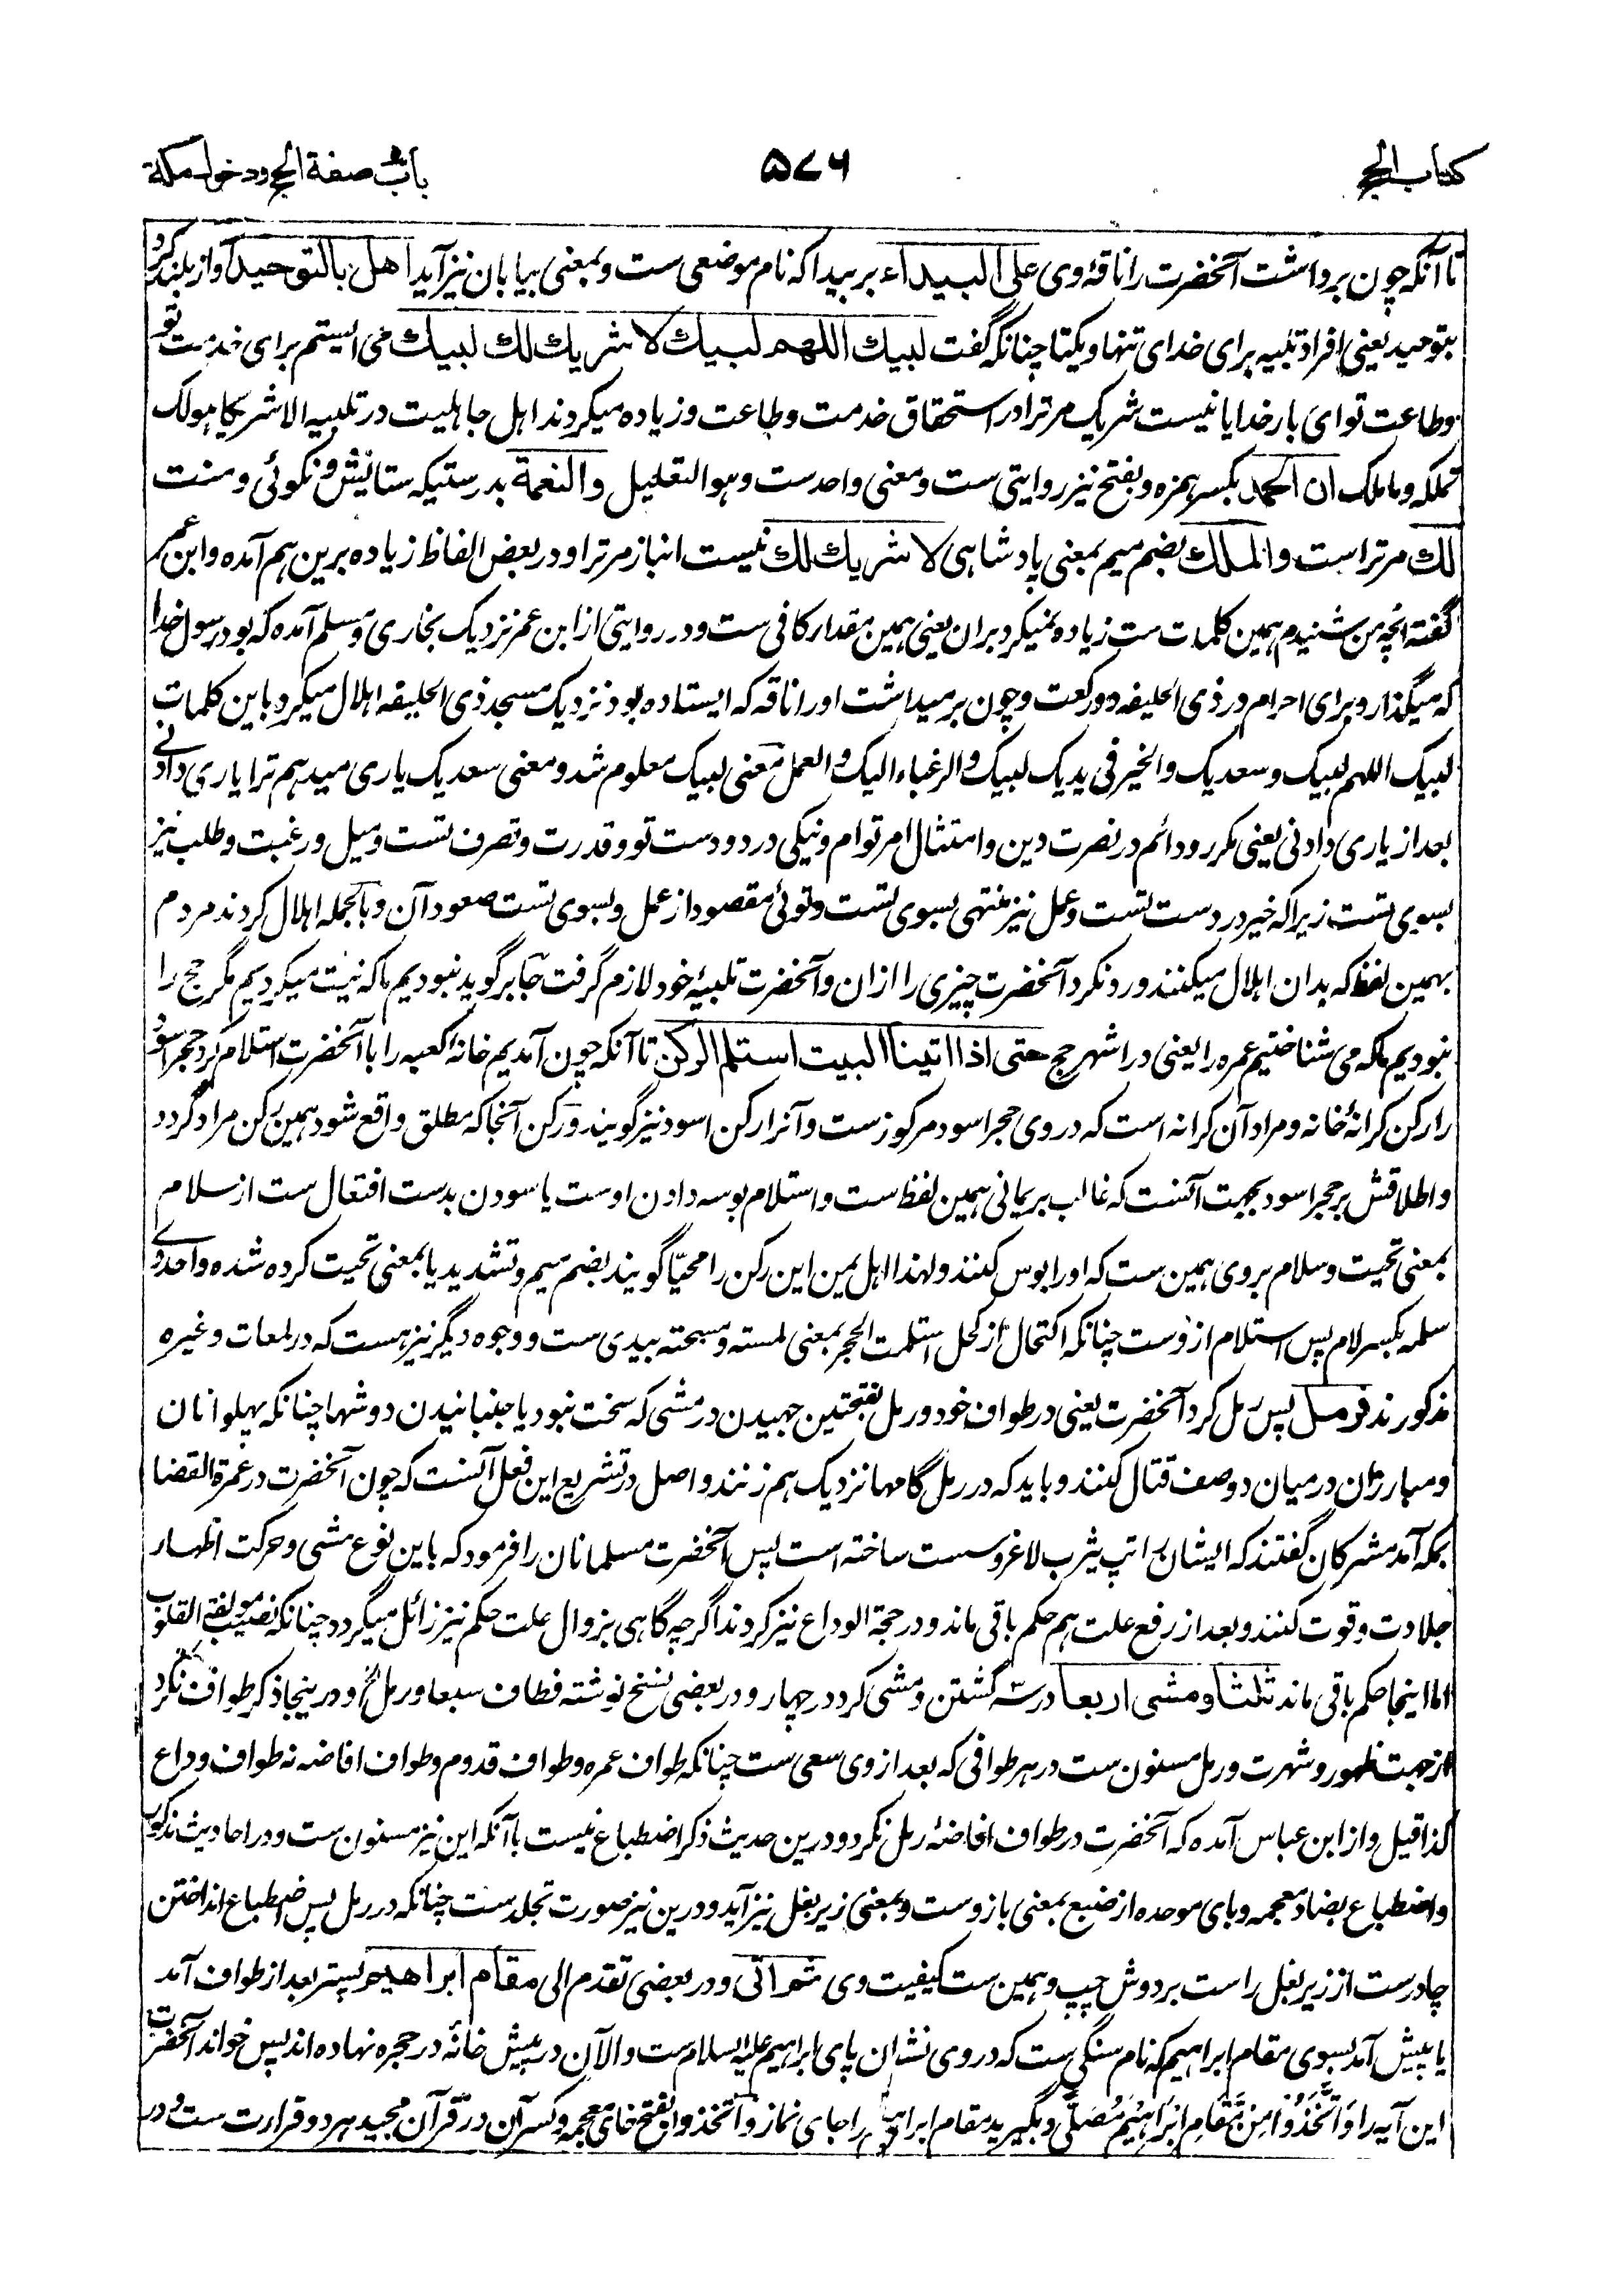 کتاب الحج
۵۷۶
باب صفة الحج ودخول مکة
تا آنکه چون برداشت آنحضرت را ناقهٔ وی علی البیداء بر بیدا که نام موضعی ست و بمعنی بیابان نیز آید اهل بالتوحید آواز بلند کرد
بتوحید یعنی افراد تلبیه برای خدای تنها و یکتا چنانکه گفت لبیك اللهم لبیك لا شریك لك لبیك می ایستم برای خدمت تو
وطاعت تو ای بار خدایا نیست شریک مر ترا در استحقاق خدمت و طاعت و زیاده میکردند اهل جاهلیت در تلبیه الا شریکا هو لک
تملکه و ما ملک ان الحمد بکسر همزه و بفتح نیز روایتی ست و معنی واحدست و هو التعلیل والنعمة بدرستیکه ستائش و نکوئی و منت
لك مر تراست والملك بضم میم بمعنی پادشاهی لا شریك لك نیست انباز مر ترا و در بعض الفاظ زیاده برین هم آمده و ابن عمر
گفته آنچه من شنیدم همین کلمات ست زیاده نمیکرد بران یعنی همین مقدار کافی ست و در روایتی از ابن عمر نزدیک بخاری و مسلم آمده که بود رسول خدا
که میگذارد برای احرام در ذی الحلیفه دو رکعت و چون بر میداشت او را ناقه که ایستاده بود نزدیک مسجد ذی الحلیفه اهلال میکرد باین کلمات
لبیک اللهم لبیک و سعدیک والخیر فی یدیک لبیک والرغباء الیک والعمل معنی لبیک معلوم شد و معنی سعدیک یاری میدهم ترا یاری دادنے
بعد از یاری دادنی یعنی مکرر و دائم در نصرت دین و امتثال امر تو ام و نیکی در دو دست تو و قدرت و تصرف تست و میل و رغبت و طلب نیز
بسوی تست زیرا که خیر در دست تست و عمل نیز منتهی بسوی تست و توئی مقصود از عمل و بسوی تست صعود آن و بالجمله اهلال کردند مردم
بهمین لفظ که بدان اهلال میکنند و رد نکرد آنحضرت چیزی را ازان و آنحضرت تلبیهٔ خود لازم گرفت جابر گوید نبودیم ما که نیت میکردیم مگر حج را
نبودیم ما که می شناختیم عمره را یعنی در اشهر حج حتی اذا اتینا البیت استلم الرکن تا آنکه چون آمدیم خانهٔ کعبه را با آنحضرت استلام کرد حجر اسود
را رکن کرانهٔ خانه و مراد آن کرانه است که در وی حجر اسود مرکوزست و آنرا رکن اسود نیز گویند و رکن آنجا که مطلق واقع شود همین رکن مراد گردد
و اطلاقش بر حجر اسود بجهت آنست که غالب بر یمانی همین لفظ ست و استلام بوسه دادن اوست یا سودن بدست افتعال ست از سلام
بمعنی تحیت و سلام بروی همین ست که او را بوس کنند و لهذا اهل یمن این رکن را محیّا گویند بضم میم و تشدید یا بمعنی تحیت کرده شده و احدے
سلمه بکسر لام پس استلام از وست چنانکه اکتحال از کحل استلمت الحجر بمعنی لمسته و مسحته بیدی ست و وجوه دیگر نیز هست که در لمعات و غیره
مذکورند فرمل پس رمل کرد آنحضرت یعنی در طواف خود و رمل بفتحتین جهیدن در مشی که سخت نبود یا جنبانیدن دوشها چنانکه پهلوانان
و مبارزان در میان دو صف قتال کنند و باید که در رمل گامها نزدیک هم زنند و اصل در تشریع این فعل آنست که چون آنحضرت در عمرة القضا
بمکه آمد مشرکان گفتند که ایشان را تپ یثرب لاغر و سست ساخته است پس آنحضرت مسلمانان را فرمود که باین نوع مشی و حرکت اظهار
جلادت و قوت کنند و بعد از رفع علت هم حکم باقی ماند و در حجة الوداع نیز کردند اگرچه گاهی بزوال علت حکم نیز زائل میگردد چنانکه نصیب مولفة القلوب
اما اینجا حکم باقی ماند ثلثا ومشی اربعا در سه گشتن و مشی کرد در چهار و در بعضی نسخ نوشته فطاف سبعا و رمل الخ و درینجا ذکر طواف نکرد
از جهت ظهور و شهرت و رمل مسنون ست در هر طوافی که بعد از وی سعی ست چنانکه طواف عمره و طواف قدوم و طواف افاضه نه طواف وداع
کذا قیل و از ابن عباس آمده که آنحضرت در طواف افاضهٔ رمل نکرد و درین حدیث ذکر اضطباع نیست با آنکه این نیز مسنون ست و در احادیث مذکور
و اضطباع بضاد معجمه و بای موحده از ضبع بمعنی بازوست و بمعنی زیر بغل نیز آید و درین نیز صورت تجلدست چنانکه در رمل پس اضطباع انداختن
چادرست از زیر بغل راست بر دوش چپ و همین ست کیفیت وی ثم اتی و در بعضی تقدم الی مقام ابراهیم بستر بعد از طواف آمد
یا پیش آمد بسوی مقام ابراهیم که نام سنگی ست که در وی نشان پای ابراهیم علیه السلام ست و الآن در پیش خانهٔ در حجره نهاده اند پس خواند آنحضرت
این آیه را وَاتَّخِذُوا مِنْ مَّقَامِ اِبْرَاهِیْمَ مُصَلًّی و بگیرید مقام ابراهیم را جای نماز و اتخذوا بفتح خای معجمه و کسر آن در قرآن مجید هر دو قراءت ست و در